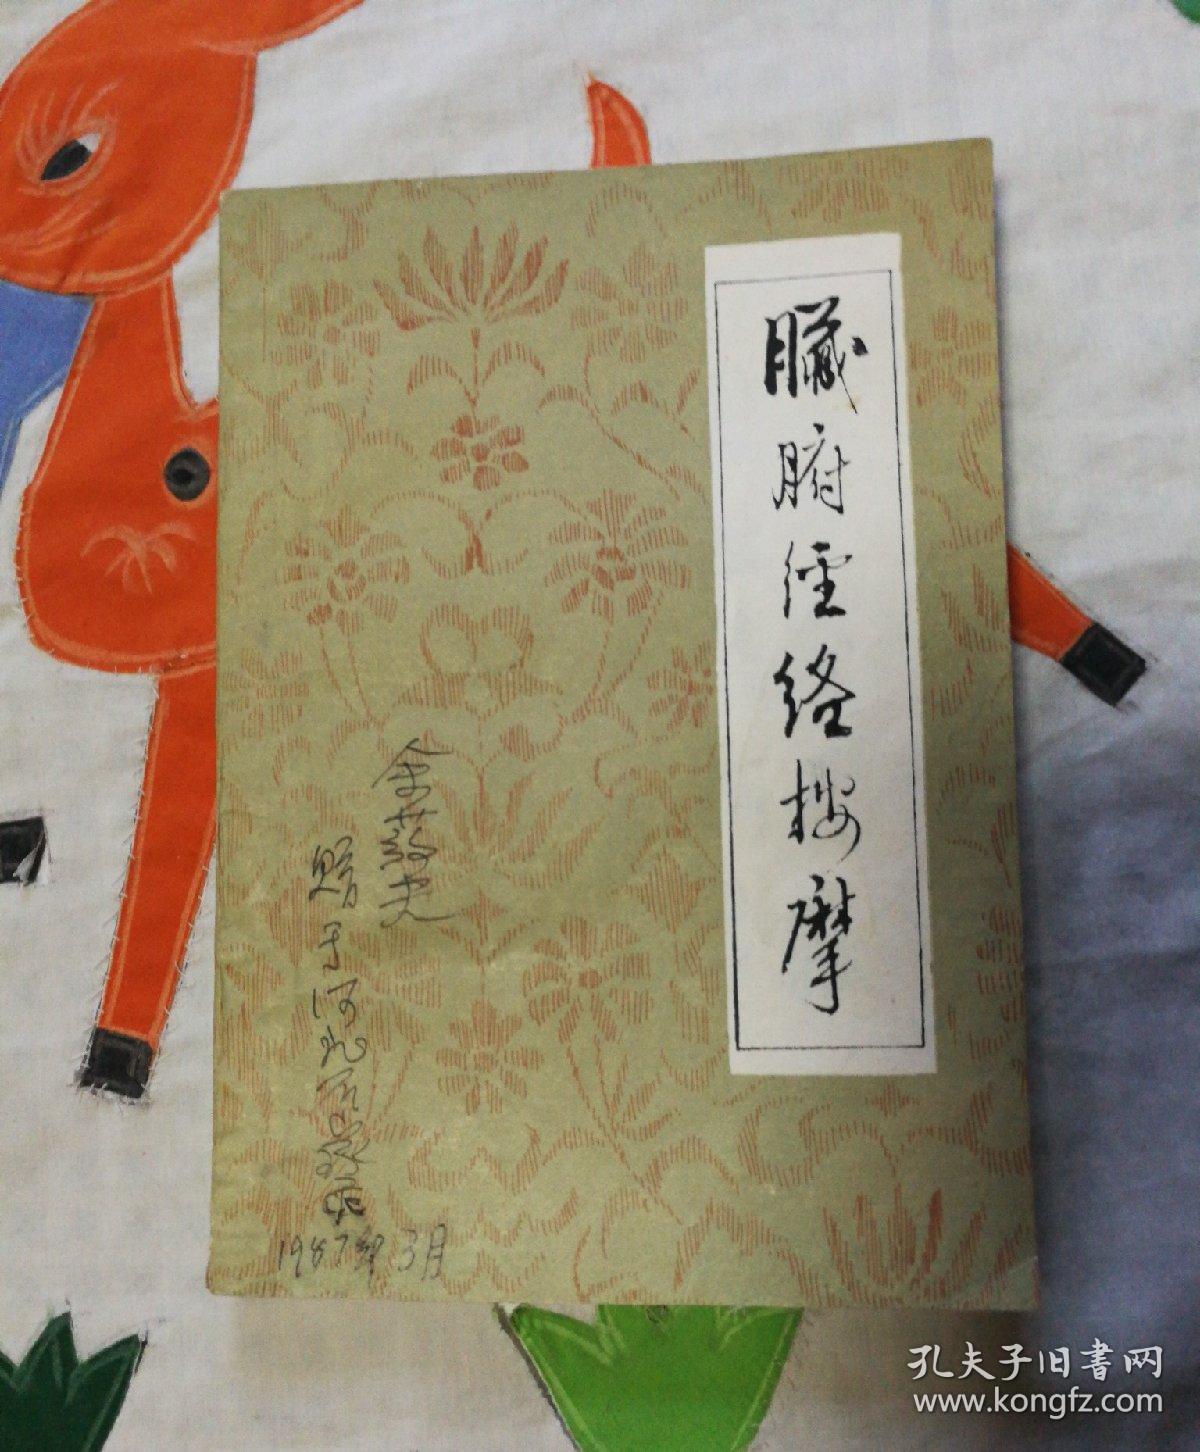 臟腑经络按摩
赠于河北
1987年3月
孔夫子旧書网
www.kongfz.com